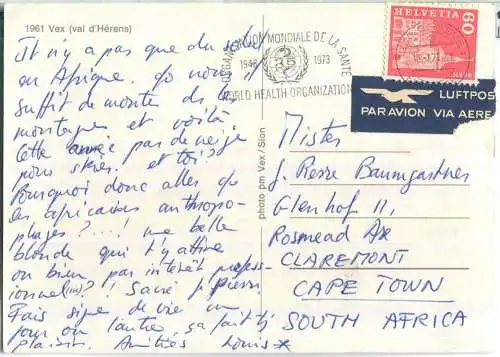 1961 Vex (val d'Hérens)
Il n'y a pas que du soleil
en Afrique. Ça nous
suffit de monter ds les
montagnes et voilà
Cette année pas de neige
pour skier. et toi?
Pourquoi donc aller
les africaines anthropo-
phages? ...! une belle
blonde qui t'y attire
ou bien par intérêt profess-
ionnel(???)! Sacré J. Pierre
Fais signe de vie un
jour ou l'autre, ça fait tj
plaisir. Amitiés Louis
photo pm Vex / Sion
ORGANISATION MONDIALE DE LA SANTÉ
1948 25 1973
WORLD HEALTH ORGANIZATION
HELVETIA
60
LUFTPOST
PAR AVION VIA AEREA
Mister
J. Pierre Baumgartner
Glenhof 11,
Rosmead Av
CLAREMONT
CAPE TOWN
SOUTH AFRICA